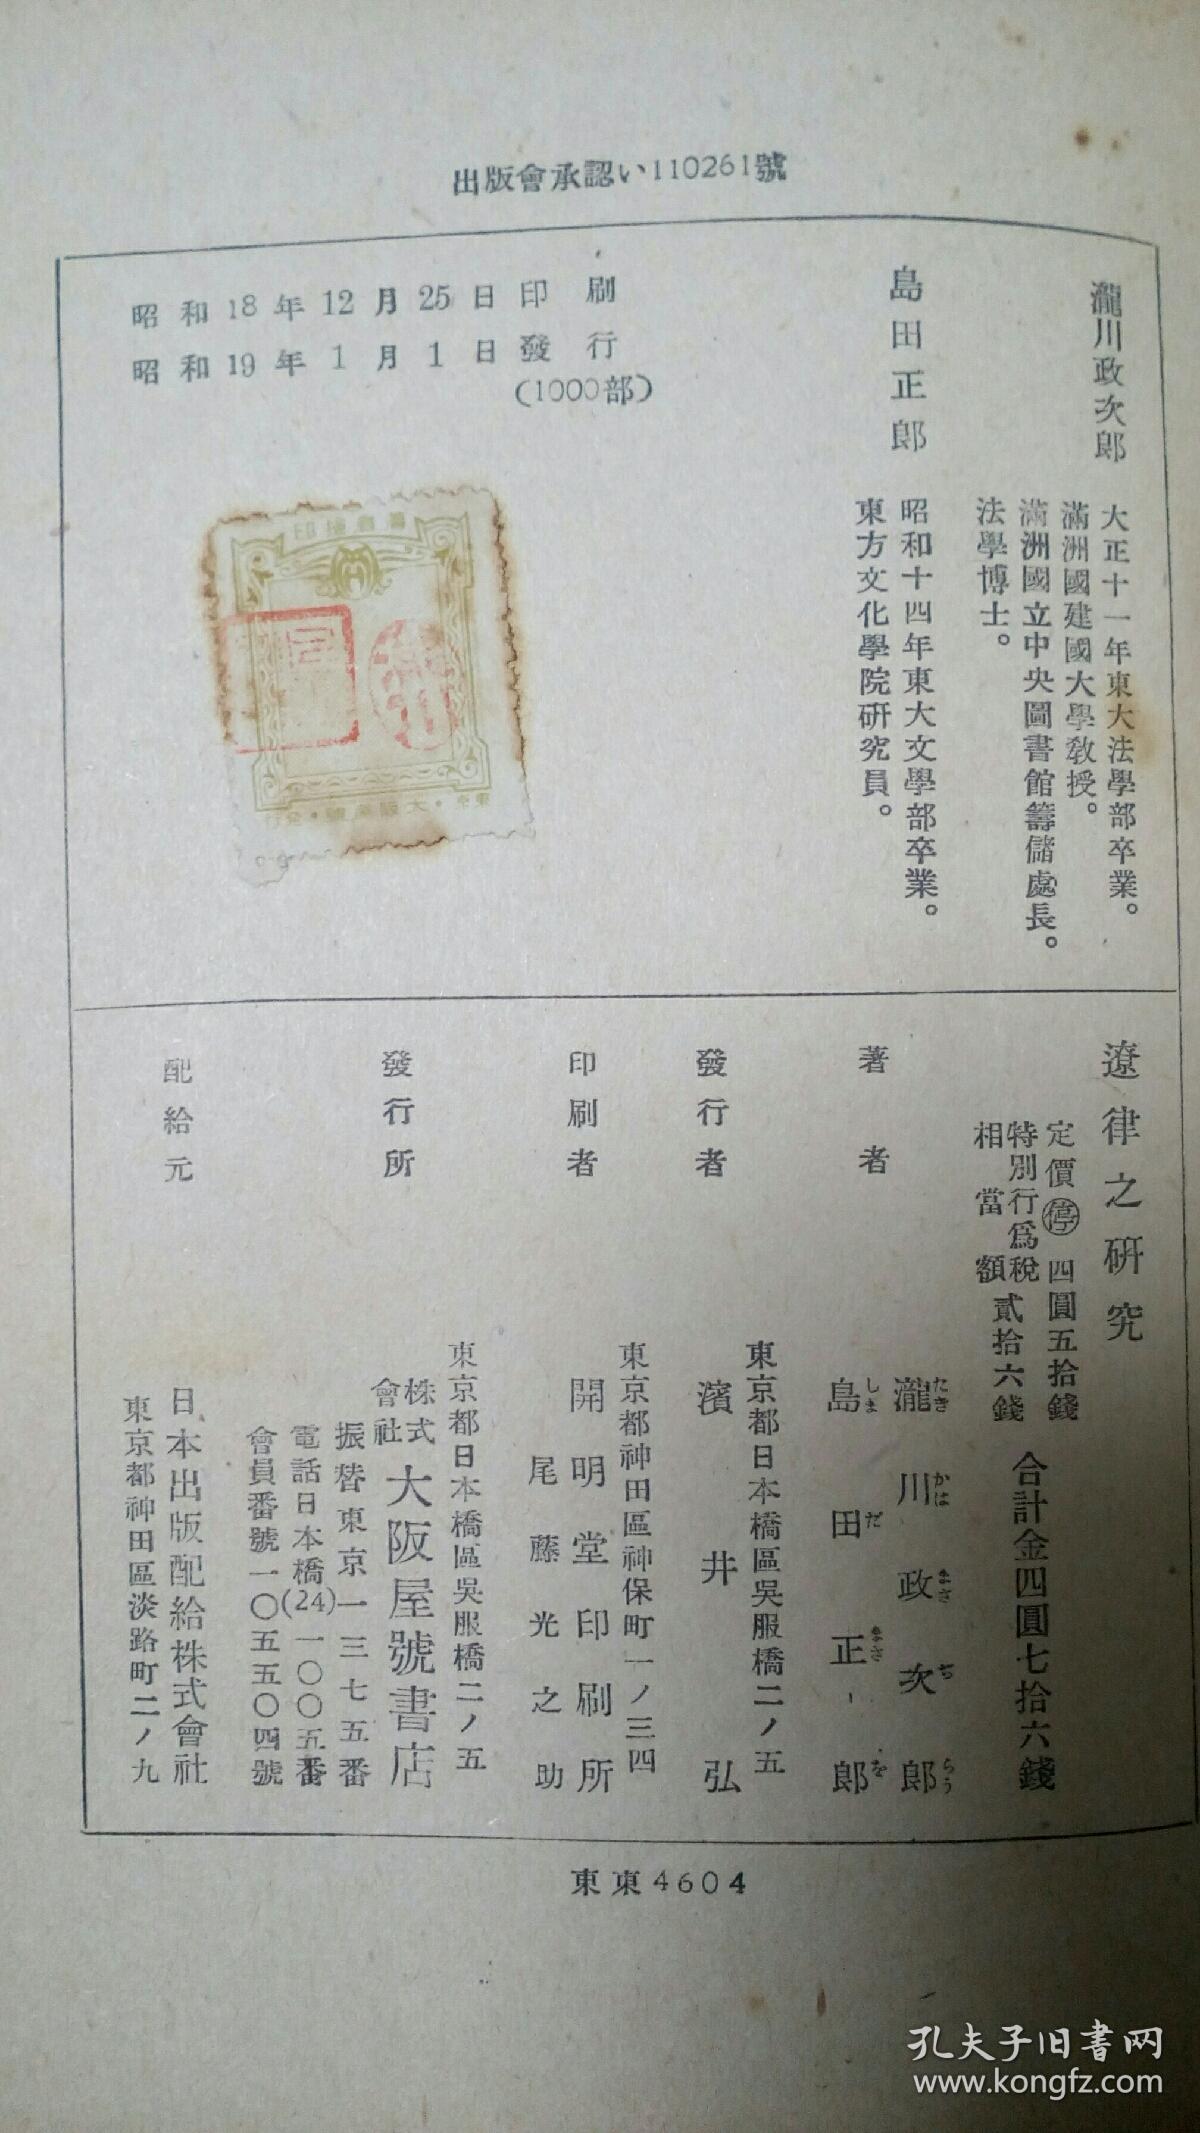 出版會承認い110261號
瀧川政次郎
大正十一年東大法學部卒業。
滿洲國建國大學教授。
滿洲國立中央圖書館籌備處長。
法學博士。
島田正郎
昭和十四年東大文學部卒業。
東方文化學院研究員。
昭和18年12月25日印刷
昭和19年1月1日發行
(1000部)
遼律之研究
定價㊡四圓五拾錢
特別行爲稅
相當額
貳拾六錢
合計金四圓七拾六錢
著者
瀧川政次郎
たきかはまさぢらう
島田正郎
しまだまさを
發行者
東京都日本橋區吳服橋二ノ五
濱井弘
印刷者
東京都神田區神保町一ノ三四
開明堂印刷所
尾藤光之助
發行所
東京都日本橋區吳服橋二ノ五
株式會社大阪屋號書店
振替東京一三七五番
電話日本橋(24)一〇〇五番
會員番號一〇五五〇四號
配給元
日本出版配給株式會社
東京都神田區淡路町二ノ九
東東4604
孔夫子旧书网
www.kongfz.com